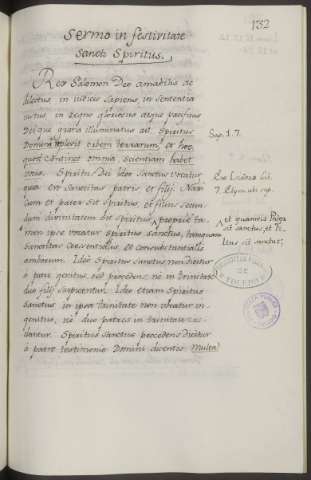 132
Sermo in festivitate
Sancti Spiritus.
Rex Salomon Deo amabilis ac
dilectus, in iudice sapiens, in sententia
iustus in Regno gloriosus atque pacificus
Deique gratia illuminatus ait. Spiritus
Domini replevit orbem terrarum, et hoc
quod continet omnia, scientiam habet
vocis. Spiritus Dei ideo Sanctus vocatur
quia est Sanctitas patris et filij. Nam
cum et pater sit Spiritus, et filius secun-
dum divinitatem sit spiritus, proprie ta-
men ipse vocatur spiritus sanctus, tamquam
Sanctitas coessentialis, et consubstantialis
amborum. Ideo Spiritus Sanctus non dicitur
à patre genitus, sed procedens, ne in trinitate
duo filij suspicentur. Ideo etiam Spiritus
sanctus in ipsa trinitate non dicatur in-
genitus, nè duo patres in trinitate cre-
dantur. Spiritus Sanctus procedens dicitur
à patre testimonio Domini dicentis: Multa
Sap. 1. 7.
Ex Isidoro lib.
7. Etym.
et quamvis Pater
sit sanctus, et Fi-
lius sit sanctus,